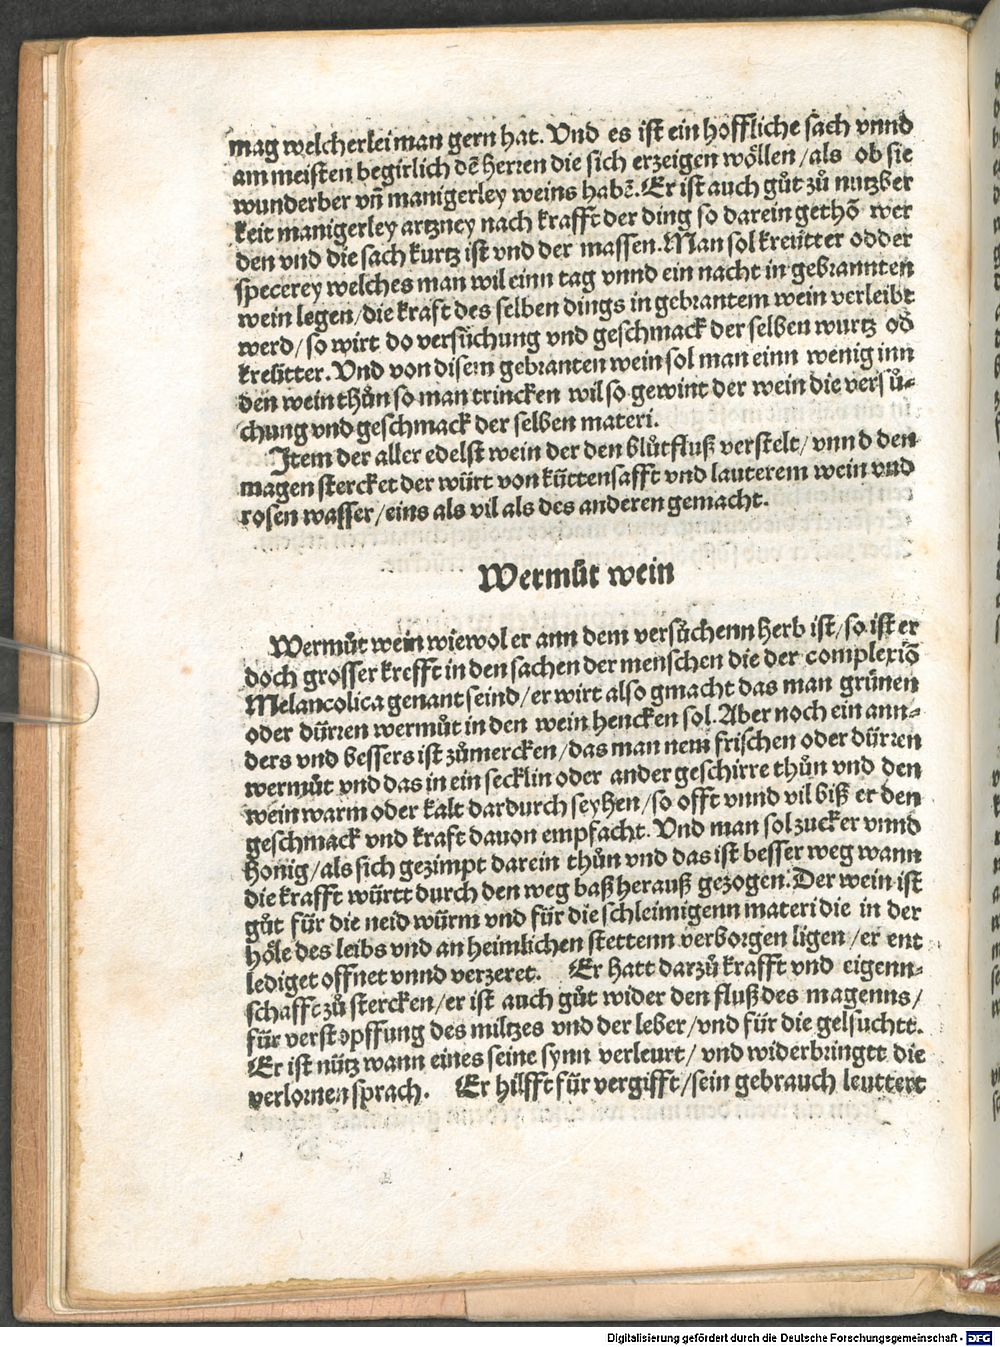 mag welcherlei man gern hat. Vnd es ist ein hoffliche sach vnnd
am meisten begirlich dē herren die sich erzeigen wöllen/als ob sie
wunderber vn̄ manigerley weins habē. Er ist auch gůt zů nutzber
keit manigerley artzney nach krafft der ding so darein gethō wer
den vnd die sach kurtz ist vnd der massen. Man sol kreütter odder
specerey welches man wil einn tag vnnd ein nacht in gebrannten
wein legen/die kraft des selben dings in gebrantem wein verleibt
werd/so wirt do versůchung vnd geschmack der selben wurtz od̄
kreütter. Vnd von disem gebranten wein sol man einn wenig inn
den wein thůn so man trincken wil so gewint der wein die versů⸗
chung vnd geschmack der selben materi.
Item der aller edelst wein der den blůtfluß verstelt/vnnd den
magen stercket der würt von küttensafft vnd lauterem wein vnd
rosen wasser/eins als vil als des anderen gemacht.
Wermůt wein
Wermůt wein wiewol er ann dem versůchenn herb ist/so ist er
doch grosser krefft in den sachen der menschen die der complexiō
Melancolica genant seind/er wirt also gmacht das man grünen
oder dürren wermůt in den wein hencken sol. Aber noch ein ann⸗
ders vnd bessers ist zůmercken/das man nem frischen oder dürren
wermůt vnd das in ein secklin oder ander geschirre thůn vnd den
wein warm oder kalt dardurch seyhen/so offt vnnd vil biß er den
geschmack vnd kraft dauon empfacht. Vnd man sol zucker vnnd
honig/als sich gezimpt darein thůn vnd das ist besser weg wann
die krafft württ durch den weg baß herauß gezogen. Der wein ist
gůt für die neid würm vnd für die schleimigenn materi die in der
höle des leibs vnd an heimlichen stettenn verborgen ligen/er ent
lediget offnet vnnd verzeret. Er hatt darzů krafft vnd eigenn⸗
schafft zů stercken/er ist auch gůt wider den fluß des magenns/
für verstopffung des miltzes vnd der leber/vnd für die gelsuchtt.
Er ist nütz wann eines seine synn verleurt/vnd widerbringtt die
verlornen sprach. Er hilfft für vergifft/sein gebrauch leuttert
Digitalisierung gefördert durch die Deutsche Forschungsgemeinschaft - DFG